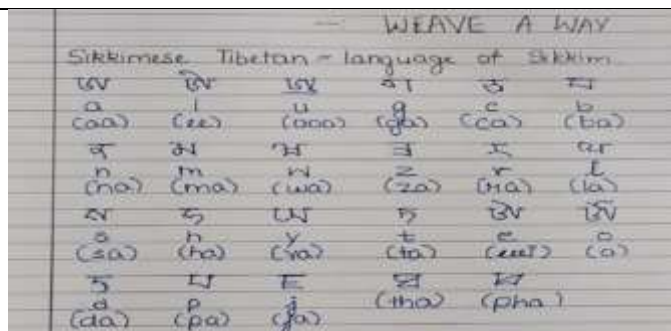 WEAVE A WAY
Sikkimese Tibetan - language of Sikkim
ཨ ཨི ཨུ ག ཅ བ
a i u g c b
(aa) (ee) (ooo) (ga) (ca) (ba)
ན མ ཝ ཟ ར ལ
n m w z r l
(na) (ma) (wa) (za) (ra) (la)
ས ཧ ཡ ཏ ཨེ ཨོ
s h y t e o
(sa) (ha) (ya) (ta) (o)
ད པ ཇ ཐ ཕ
d p j (tha) (pha)
(da) (pa) (ja)